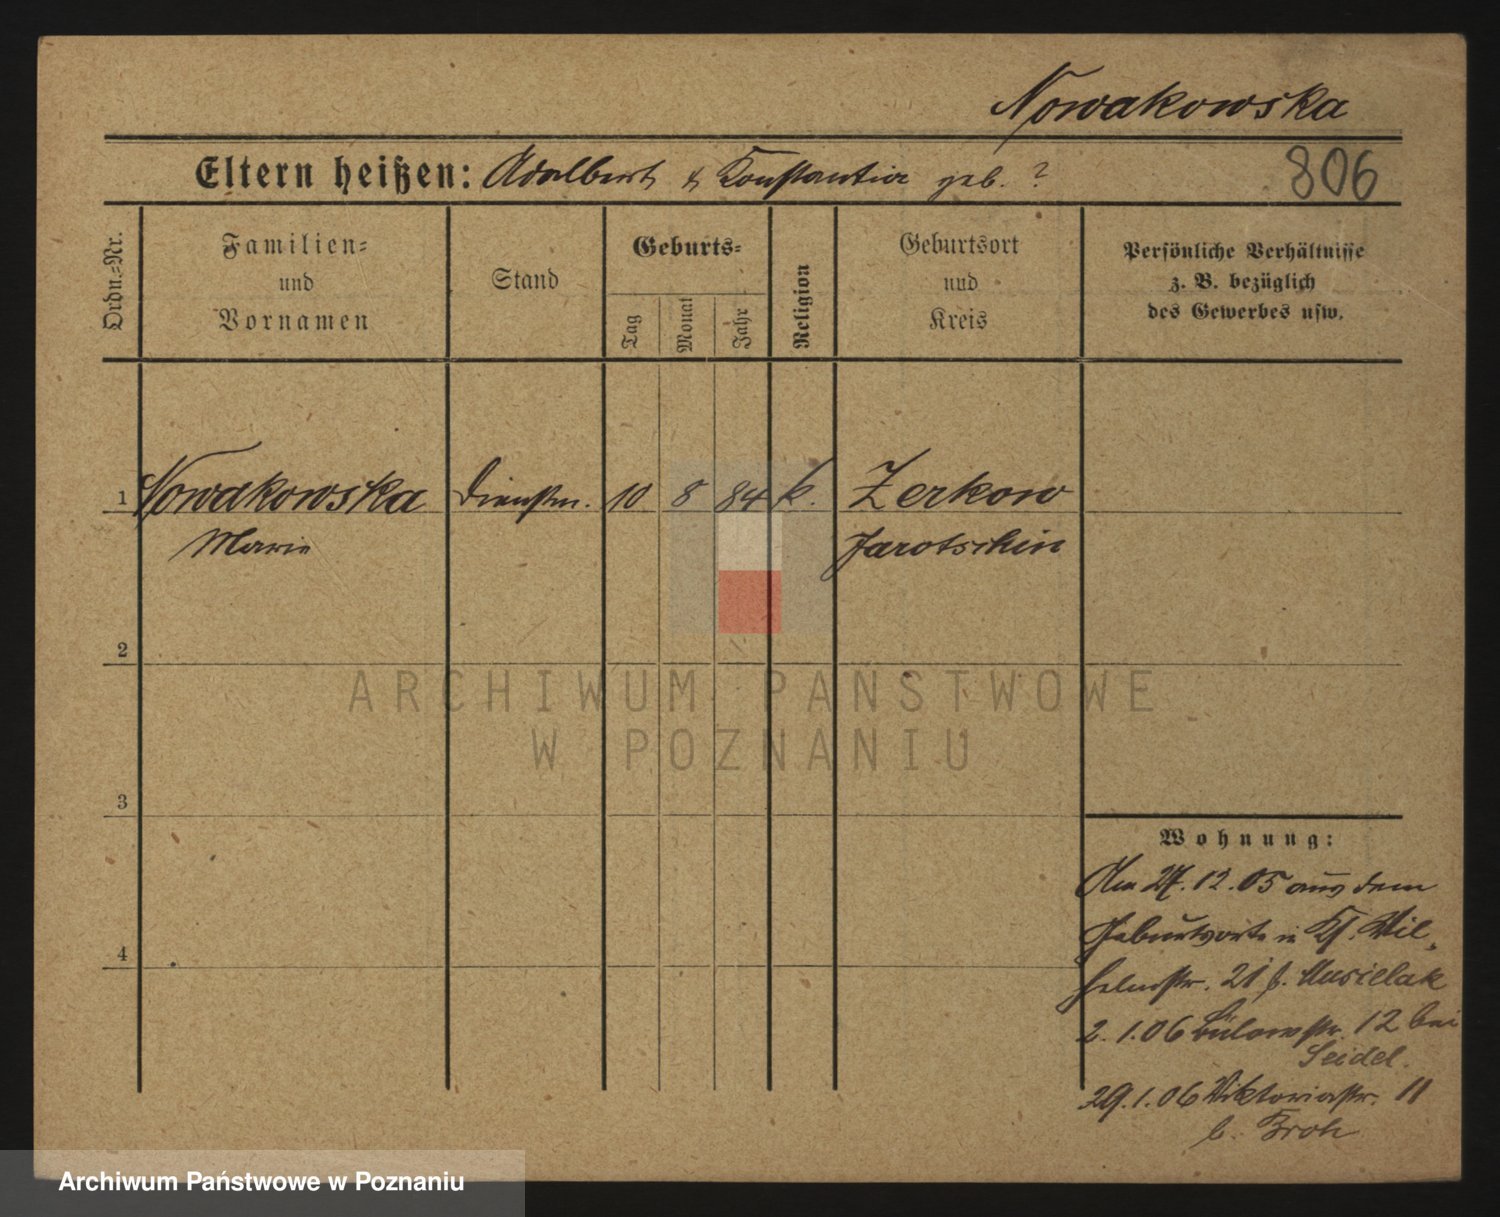 Nowakowska
Eltern heißen: Adalbert & Konstantia geb. ?
806
Ordn.=Nr.
Familien=
und
Vornamen
Stand
Geburts=
Tag
Monat
Jahr
Religion
Geburtsort
und
Kreis
Persönliche Verhältnisse
z. B. bezüglich
des Gewerbes usw.
1 Nowakowska Dienstm. 10 8 84 k. Zerkow
Marie Jarotschin
2
ARCHIWUM PAŃSTWOWE
W POZNANIU
3
Wohnung:
Am 27.12.05 aus dem
Geburtsorte in Kl. Wil-
helmstr. 21 b. Musielak
4
2.1.06 Bülowstr. 12 bei
Seidel.
29.1.06 Viktoriastr. 11
b. Broh
Archiwum Państwowe w Poznaniu